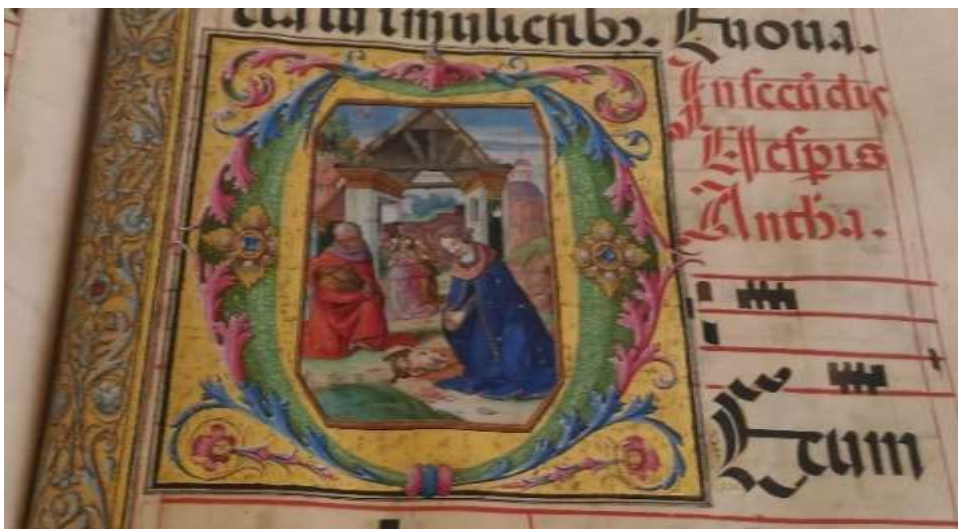 tu i mulieribꝫ. Euoua.
In secūdis
Vesꝑis
Antħa.
Tecum